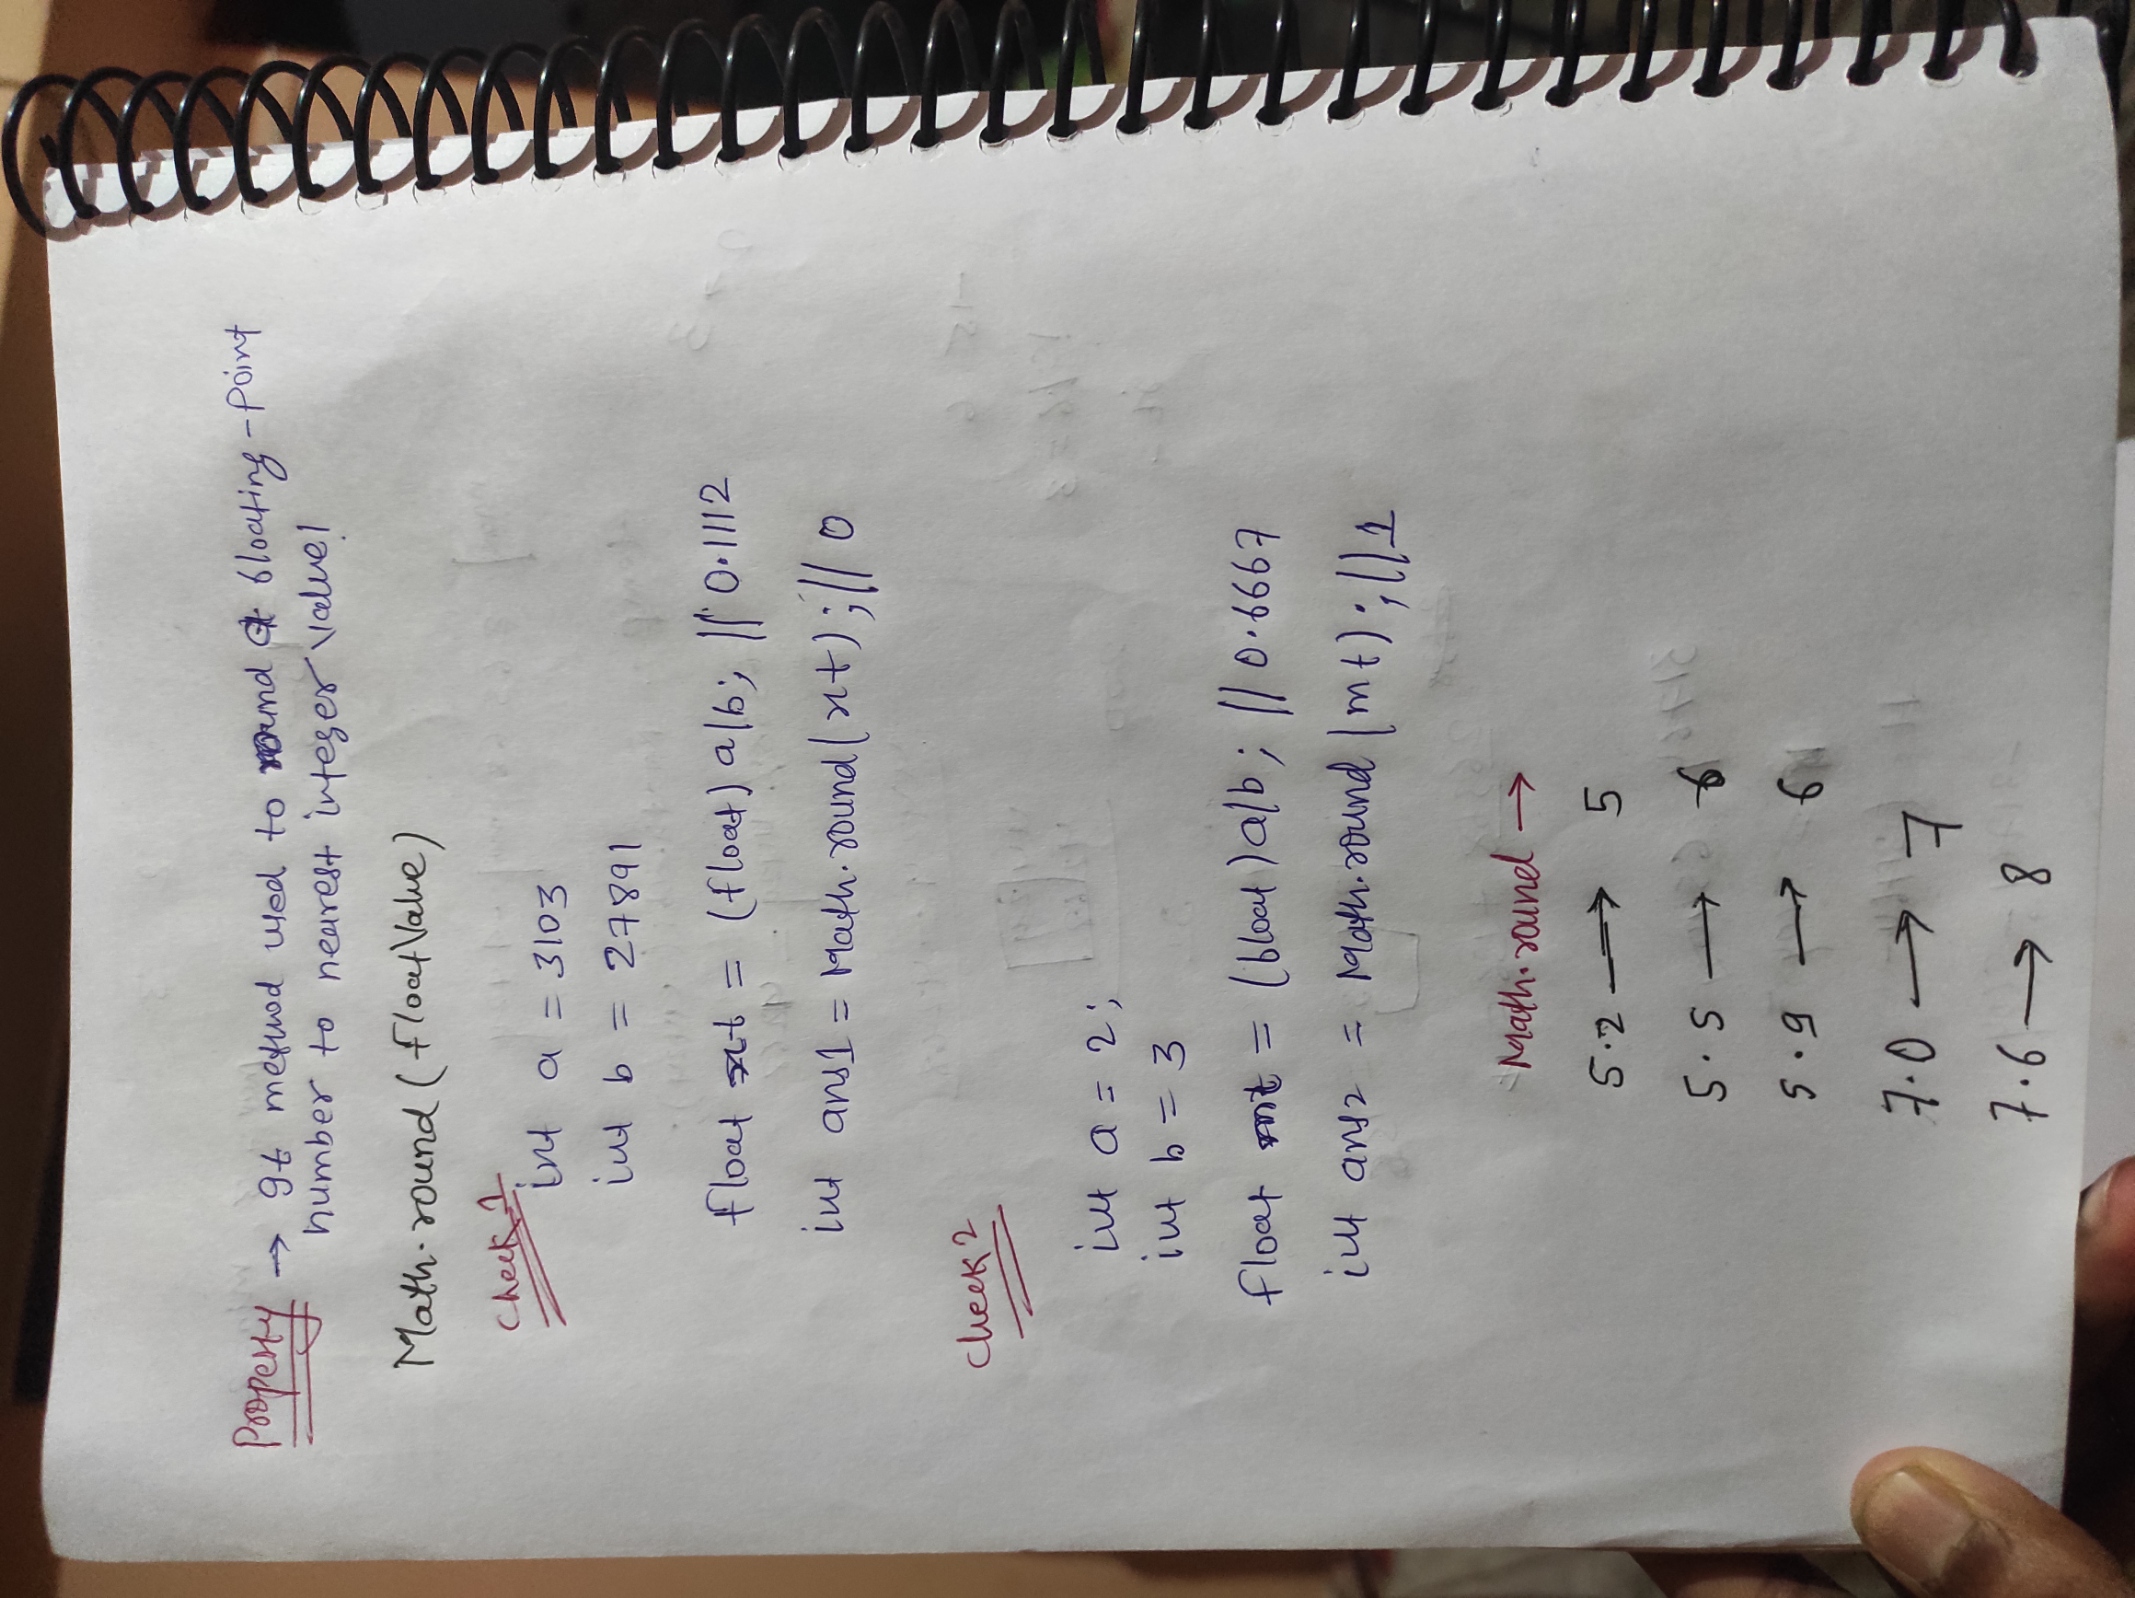 Property → It method used to round a floating-point
number to nearest integer value!
Math.round (floatValue)
Check 1
int a = 3103
int b = 27891
float xt = (float) a/b; // 0.1112
int ans1 = Math.round(xt); // 0
Check 2
int a = 2;
int b = 3
float mt = (float) a/b; // 0.6667
int ans2 = Math.round(mt); // 1
Math.round →
5.2 → 5
5.5 → 6
5.9 → 6
7.0 → 7
7.6 → 8